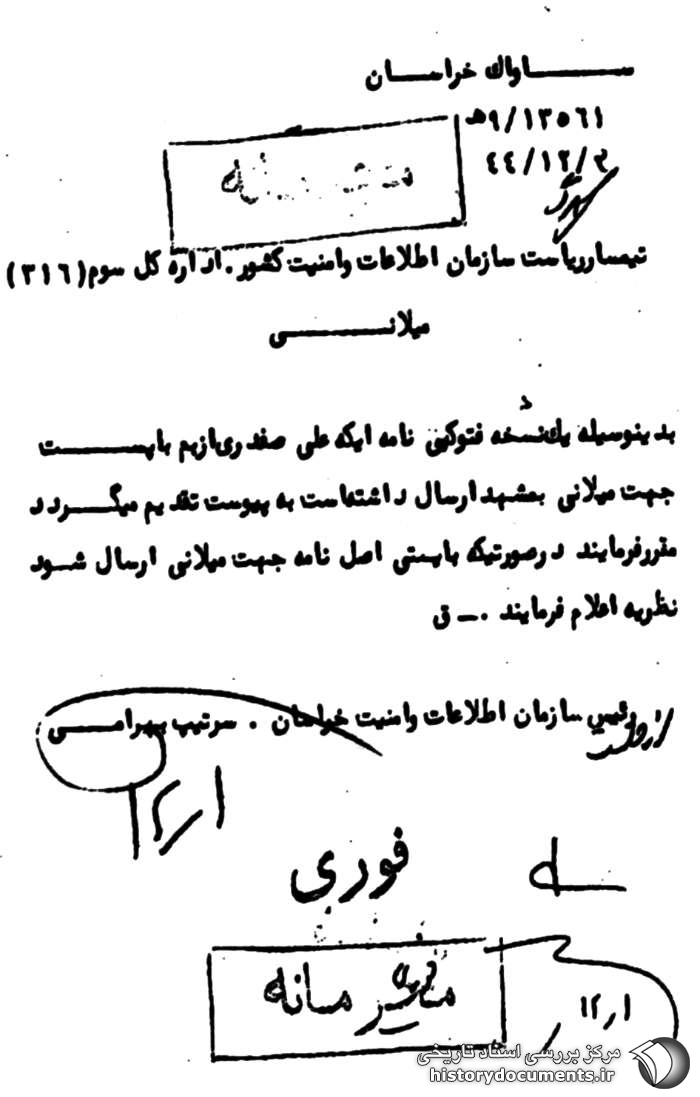 ساواك خراسان
۹/۱۳۵۶۱ه
۴۴/۱۲/۲
تیمسار ریاست سازمان اطلاعات و امنیت کشور . اداره کل سوم (۳۱۶)
میلانی
بدینوسیله یك نسخه فتوکپی نامه ایکه علی صفدری از بم با پست
جهت میلانی بمشهد ارسال داشته است به پیوست تقدیم میگردد
مقرر فرمایند در صورتیکه بایستی اصل نامه جهت میلانی ارسال شود
نظریه اعلام فرمایند .ـ ق
رئیس سازمان اطلاعات و امنیت خراسان . سرتیپ بهرامی
فوری
محرمانه
مرکز بررسی اسناد تاریخی
historydocuments.ir